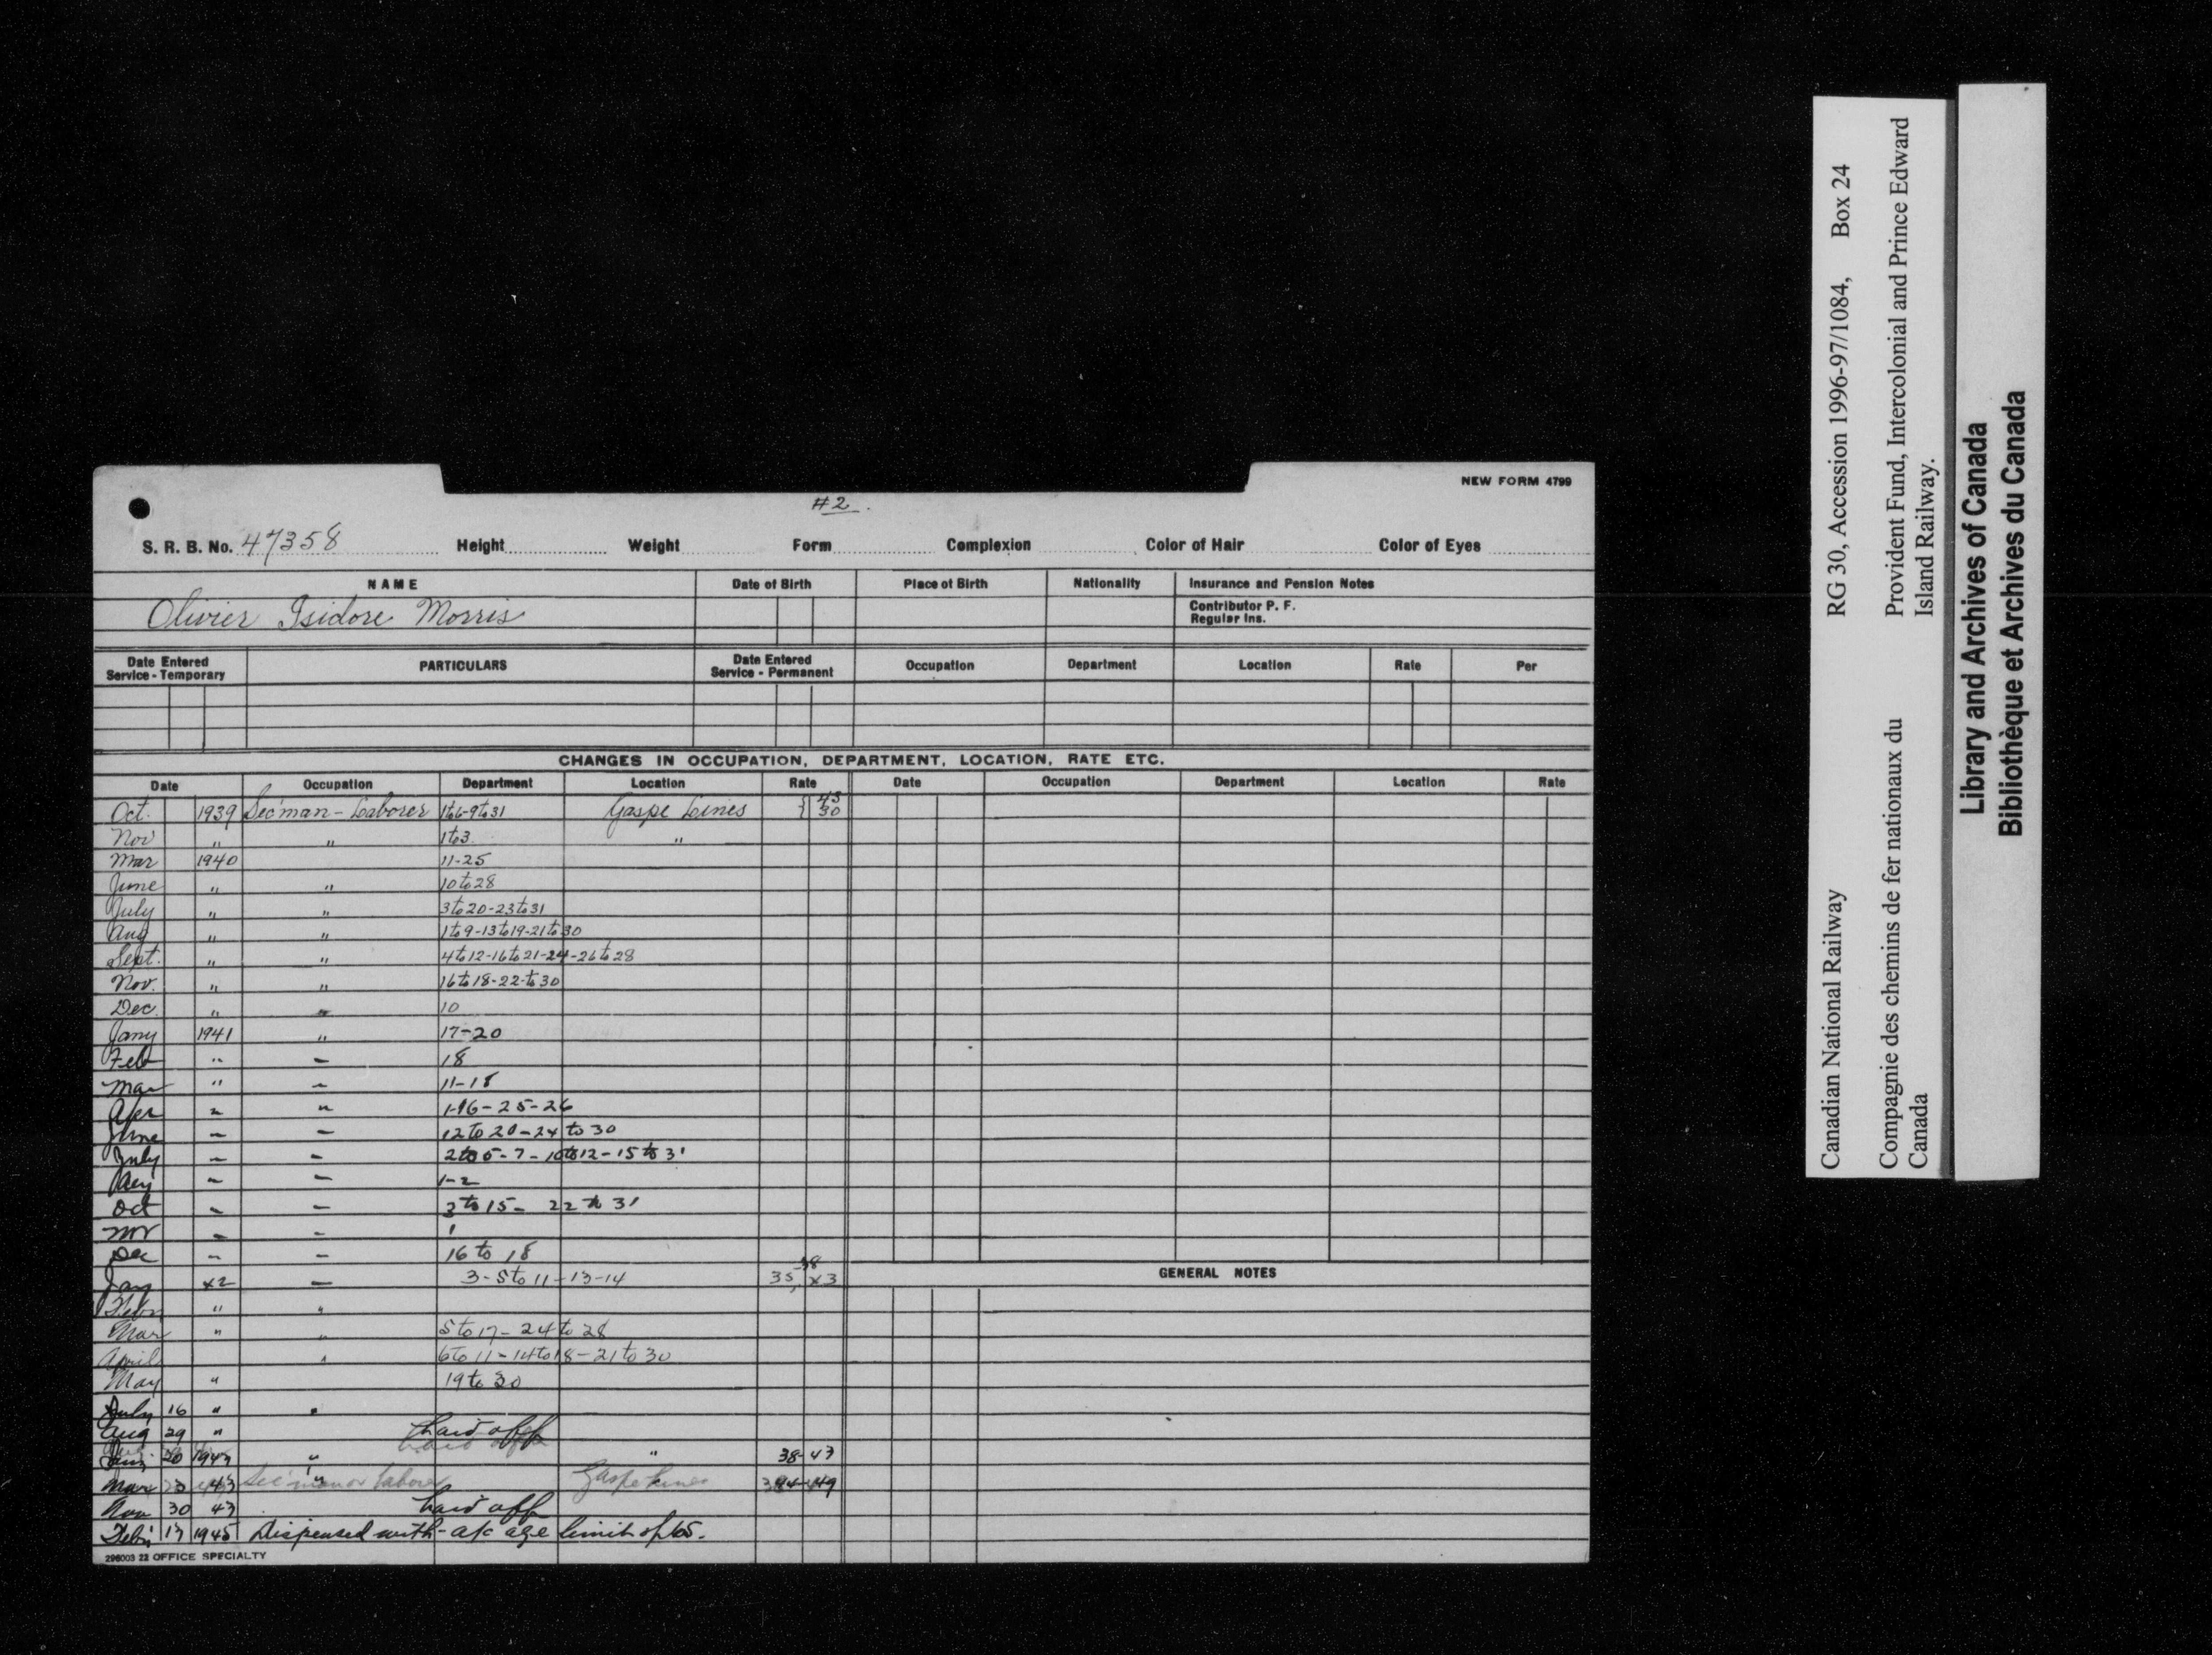 NEW FORM 4799
#2.
S. R. B. No. 47358 Height Weight Form Complexion Color of Hair Color of Eyes
NAME Date of Birth Place of Birth Nationality Insurance and Pension Notes
Olivier Isidore Morris Contributor P. F.
Regular Ins.
Date Entered Service - Temporary PARTICULARS Date Entered Service - Permanent Occupation Department Location Rate Per
CHANGES IN OCCUPATION, DEPARTMENT, LOCATION, RATE ETC.
Date Occupation Department Location Rate Date Occupation Department Location Rate
Oct. 1939 Sec'man - Laborer 1to6-9to31 Gaspe Lines 43 30
Nov " " 1to3 "
Mar 1940 11-25
June " " 10to28
July " " 3to20-23to31
Aug " " 1to9-13to19-21to30
Sept. " " 4to12-16to21-24-26to28
Nov. " " 16to18-22-to30
Dec. " " 10
Jany 1941 " 17-20
Feb " " 18
Mar " " 11-18
Apr " " 1-16-25-26
June " " 12to20-24to30
July " " 2to5-7-10to12-15to31
" " 1-2
Oct " " 3to15- 22to31
Nov " " 1
Dec " " 16to18
Jan 42 " 3-5to11-13-14 35, 38 43
GENERAL NOTES
Feby " "
Mar " " 5to17-24to28
April " 6to11-14to18-21to30
May " 19to30
July 16 " "
Aug 29 " Laid off
20 194 " " 38-43
Mar 23 43 Sec'man or Laborer Gaspe Lines 44-49
Nov 30 43 Laid off
Feby 17 1945 Dispensed with - a/c age limit of 65.
296003 22 OFFICE SPECIALTY
Canadian National Railway RG 30, Accession 1996-97/1084, Box 24
Compagnie des chemins de fer nationaux du Canada
Provident Fund, Intercolonial and Prince Edward Island Railway.
Library and Archives of Canada
Bibliothèque et Archives du Canada